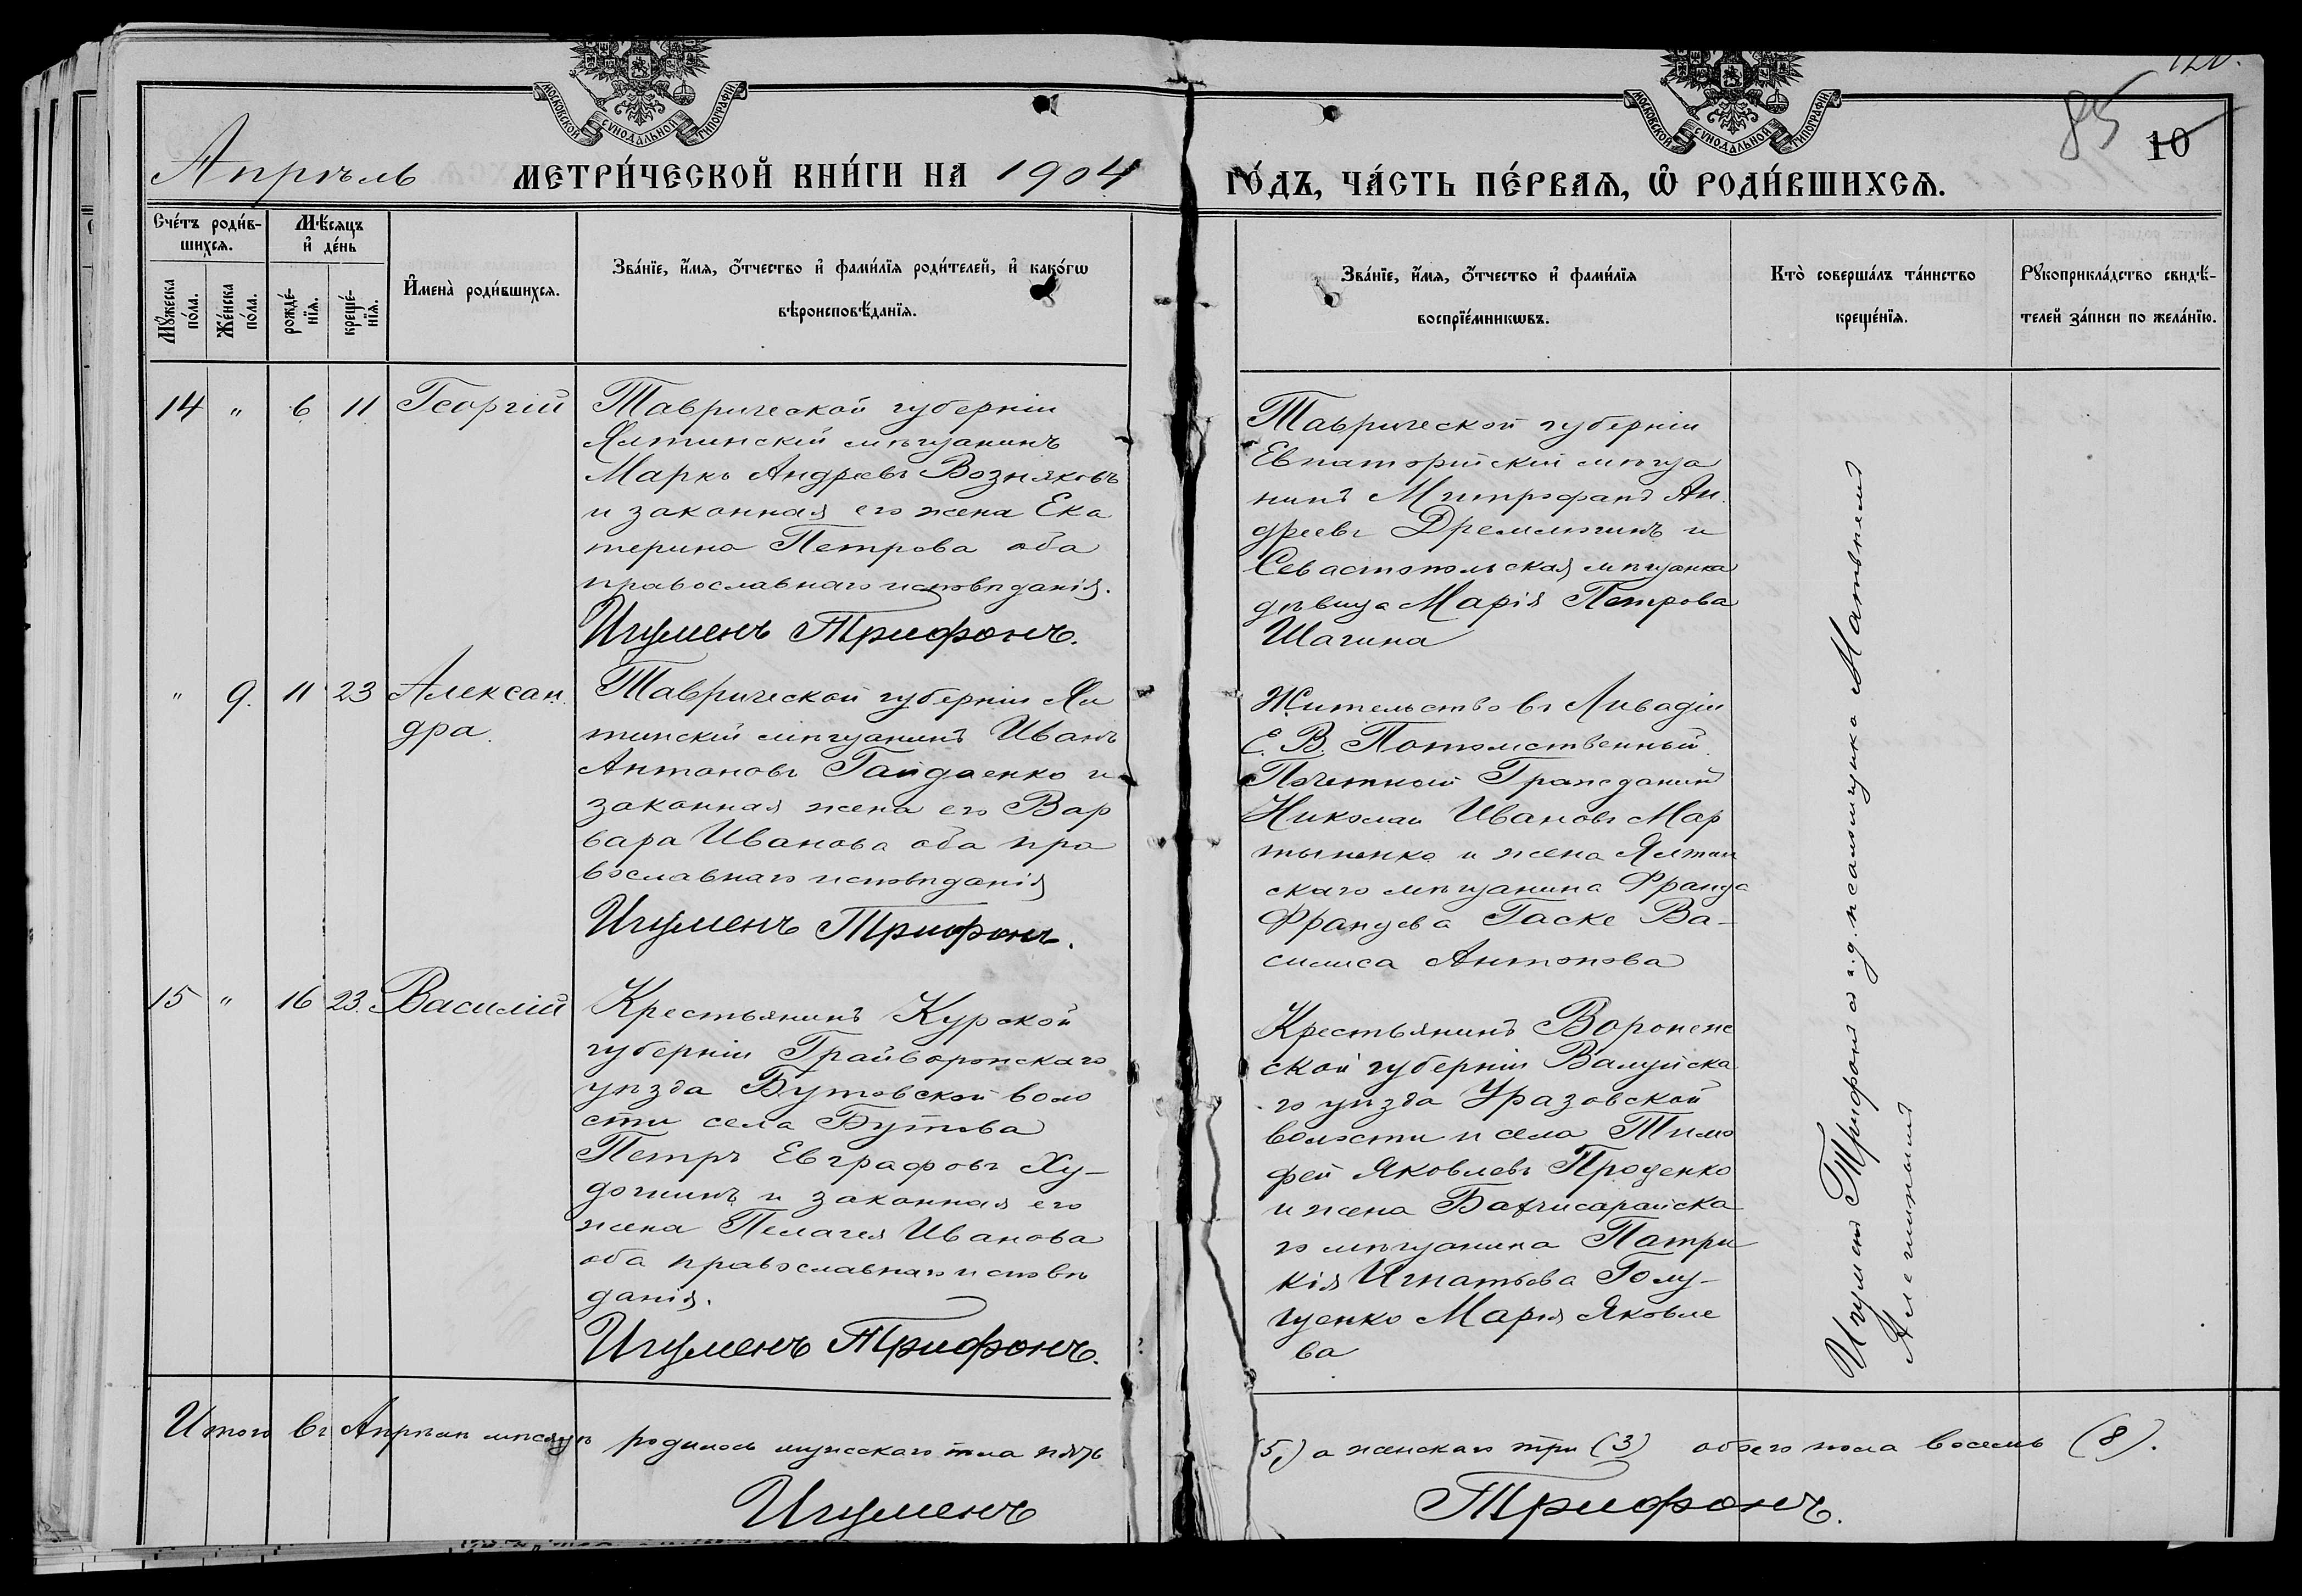 МОСКОВСКОЙ СѴНОДАЛЬНОЙ ТИПОГРАФІИ
МОСКОВСКОЙ СѴНОДАЛЬНОЙ ТИПОГРАФІИ
85
10
Апрѣль МЕТРИ́ЧЕСКОЙ КНИ́ГИ НА 1904 ГО́ДЪ, ЧА́СТЬ ПЕ́РВАѦ, Ѡ҆ РОДИ́ВШИХСѦ.
Сче́тъ роди́в-
шихсѧ.
Мꙋ́жеска по́ла.
Же́нска по́ла.
Мѣ́сѧцъ
и҆ де́нь
рожде́-
нїѧ.
креще́-
нїѧ.
И҆мена̀ роди́вшихсѧ.
Зва́нїе, и҆́мѧ, ѻ҆́тчество и҆ фами́лїѧ роди́телей, и҆ како́гѡ
вѣроисповѣ́данїѧ.
Зва́нїе, и҆́мѧ, ѻ҆́тчество и҆ фами́лїѧ
воспрїе́мникѡвъ.
Кто̀ соверша́лъ та́инство
креще́нїѧ.
Рꙋкоприкла́дство свидѣ́-
телей за́писи по жела́нїю.
14 " 6 11 Георгій
Таврической губерніи
Ялтинскій мѣщанинъ
Маркъ Андреевъ Возняковъ
и законная его жена Ека
терина Петрова оба
православнаго исповѣданія.
Игуменъ Трифонъ.
Таврической губерніи
Евпаторійскій мѣща
нинъ Митрофанъ Ан
дреевъ Дремлюгинъ и
Севастопольская мѣщанка
дѣвица Марія Петрова
Шагина
" 9. 11 23 Алексан
дра.
Таврической губерніи Ял
тинскій мѣщанинъ Иванъ
Антоновъ Гайдаенко и
законная жена его Вар
вара Иванова оба пра
вославнаго исповѣданія
Игуменъ Трифонъ.
Жительство въ Ливадіи
Е. В. Потомственный
Почетной Гражданинъ
Николай Ивановъ Мар
тыненко и жена Ялтин
скаго мѣщанина Франца
Францева Гаске Ва-
силиса Антонова
15 " 16 23. Василій
Крестьянинъ Курской
губерніи Грайворонскаго
уѣзда Бутовской воло
сти села Бутова
Петръ Евграфовъ Ху-
догинъ и законная его
жена Пелагея Иванова
оба православнаго исповѣ
данія.
Игуменъ Трифонъ.
Крестьянинъ Воронеж
ской губерніи Валуйска
го уѣзда Уразовской
волости и села Тимо
фей Яковлевъ Проценко
и жена Бахчисарайска
го мѣщанина Патри
кія Игнатьева Голу-
щенко Марія Яковле
ва
Игуменъ Трифонъ съ и.д. псаломщика Матвѣемъ
Итого въ Апрѣлѣ мѣсяцѣ родилось мужскаго пола пять (5) а женскаго три (3) обоего пола восемь (8).
Игуменъ Трифонъ.